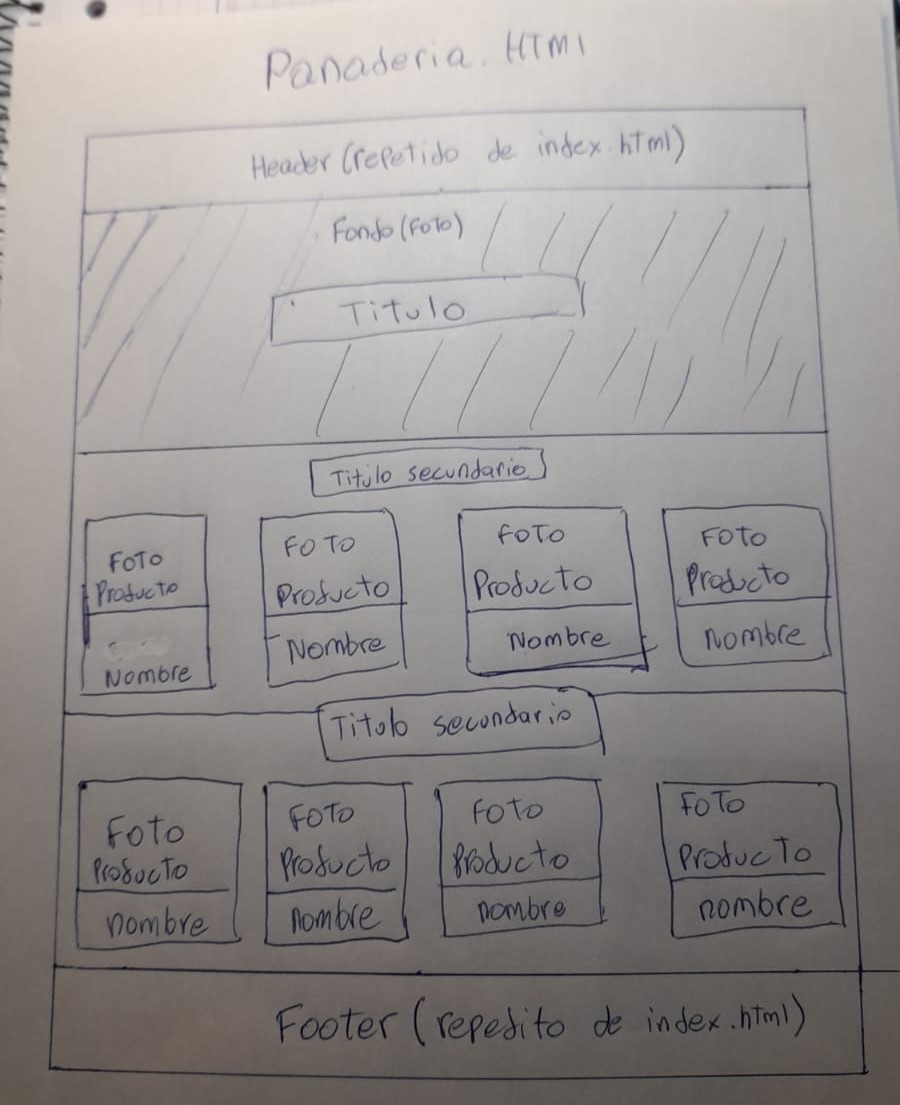 Panaderia.HTMl
Header (repetido de index.html)
Fondo (Foto)
Titulo
Titulo secundario
FOTO
Producto
Nombre
FOTO
Producto
Nombre
FOTO
Producto
Nombre
FOTO
Producto
Nombre
Titulo secundario
FOTO
Producto
nombre
FOTO
Producto
nombre
FOTO
Producto
nombre
FOTO
Producto
nombre
Footer (repedito de index.html)